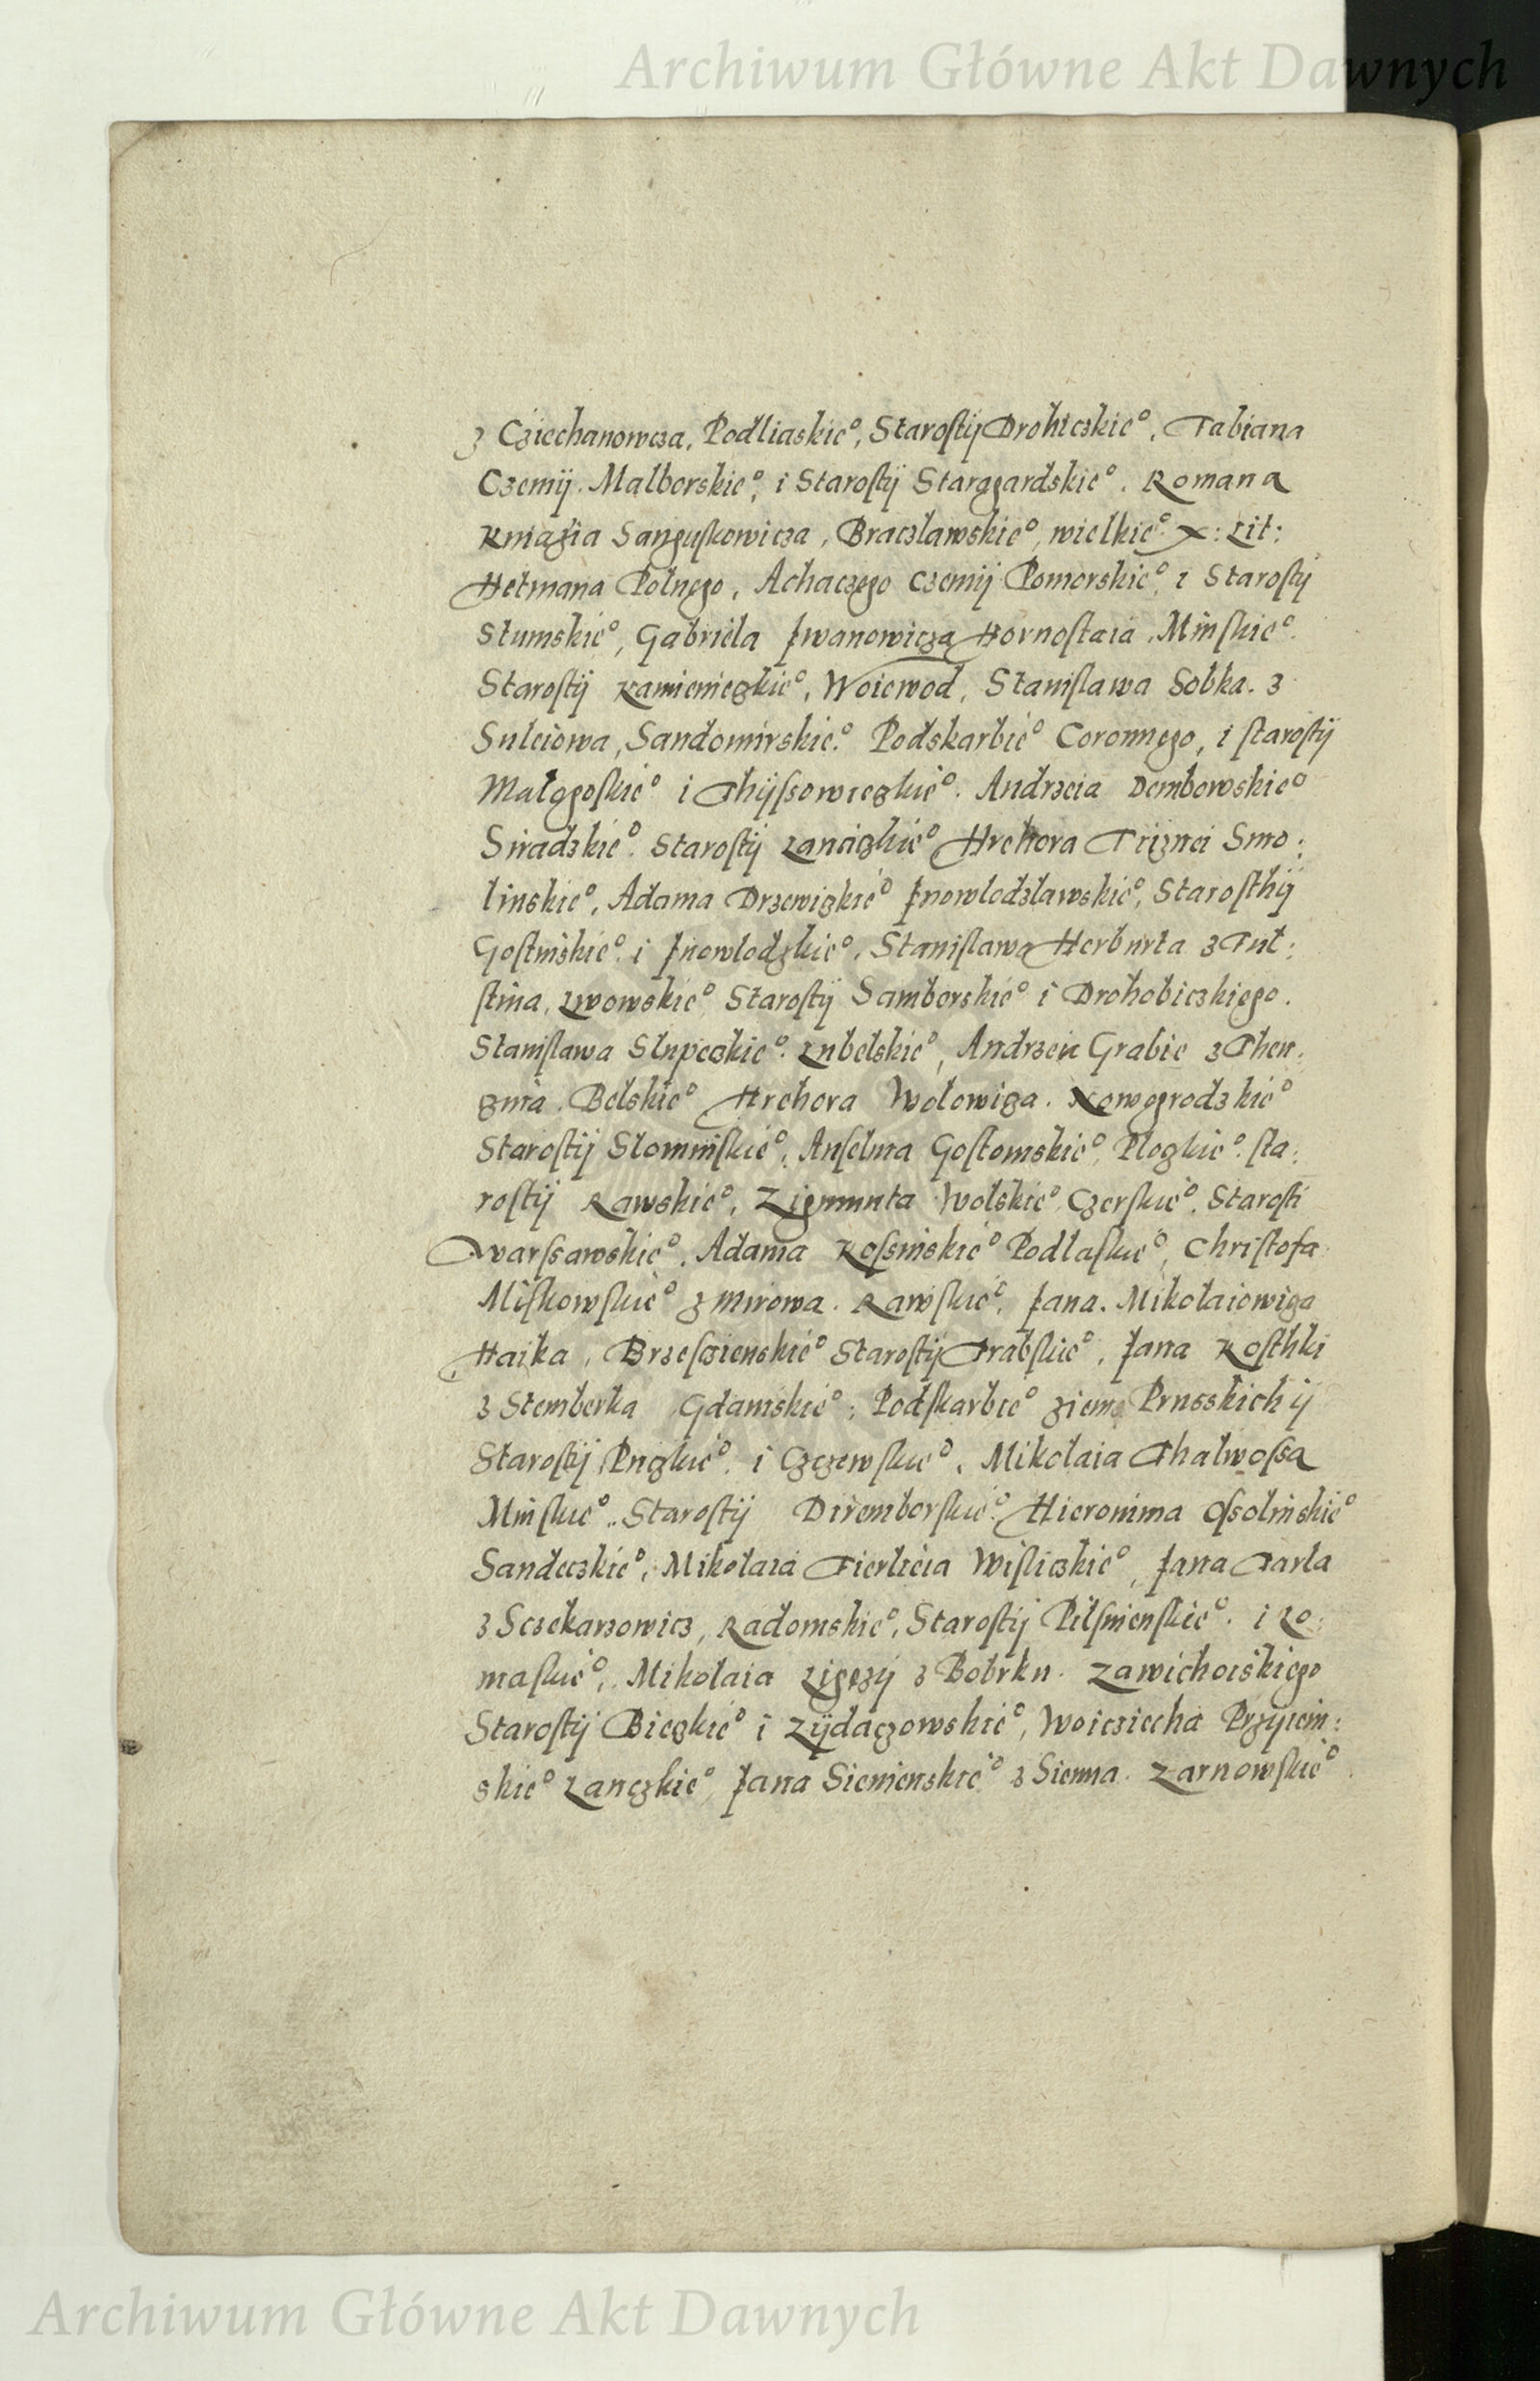 Archiwum Główne Akt Dawnych
z Cziechanowcza, Podliaskie°, Starosty Drohiczskie°, Fabiana
Czemij. Malborskie°, i Starostij Stargardskie°. Romana
Kniazia Sanguskowicza, Braczlawskie°, wielkie° X: Lit:
Hetmana Polnego, Achaczego Czemij Pomorskie°, i Starostij
Stumskie°, Gabriela Iwanowicza Hornostaia, Minskie°.
Starostij Kamienieczkie°, Woiewod, Stanislawa Sobka. z
Suleiowa, Sandomirskie°. Podskarbie° Coronnego, i starostij
Malogoskie° i Thijssowieczkie°. Andrzeia Dembowskie°
Siradzkie°. Starostij Lanczizkie° Hrehora Triznei Smo:
linskie°, Adama Drzewiczkie° Inowlodzlawskie°, Starosthij
Gostinskie°. i Inowlodzkie°, Stanislawa Herburta z Ful:
stina, Lwowskie° Starostij Samborskie° i Drohobiczkiego.
Stanislawa Slupeczkie°. Lubelskie°, Andrzeia Grabie z Then:
zina. Belskie° Hrehora Wolowiza. Nowogrodzkie°
Starostij Slonimskie°, Anselma Gostomskie°, Plozkie°. sta:
rostij Rawskie°, Zigmunta Wolskie° Czerskie°, Starosti
Warssawskie°, Adama Kossinskie° Podlaskie°, Christofa
Miskowskie° z Mirowa. Rawskie°, Iana. Mikolaiowiza
Haika, Brzescienskie° Starostij Trabskie°, Iana Kosthki
z Stemberka Gdanskie°, Podskarbie° ziem Prusskich ij
Starostij Puczkie°, i Czczewskie°, Mikolaia Thalwossa
Minskie°, Starostij Dinemborskie° Hieronima Ossolinskie°
Sandeczkie°, Mikolaia Fierleia Wisliczkie°, Iana Tarla
z Sczekarzowicz, Radomskie°, Starostij Pilsnienskie°. i Lo:
maskie°, Mikolaia Ligęzij z Bobrku. Zawichoiskiego
Starostij Bieczkie° i Zijdaczowskie°, Woiciecha Przyiem:
skie° Lanczkie°, Iana Sienienskie° z Sienna. Zarnowskie°
Archiwum Główne Akt Dawnych